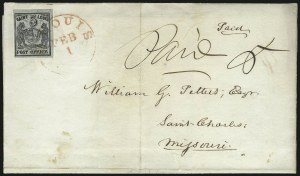 SAINT LOUIS
POST OFFICE
FEB
1
Paid
Paid 5
William G. Pettus, Esqr.
Saint Charles,
Missouri